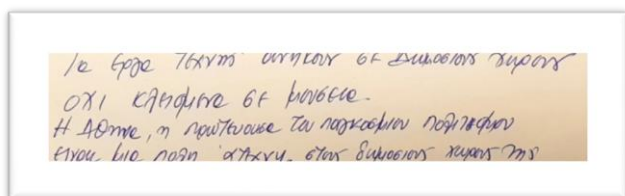 Τα έργα τέχνης ανήκουν σε δημόσιους χώρους
όχι κλεισμένα σε μουσεία.
Η Αθήνα, η πρωτεύουσα του παγκοσμίου πολιτισμού
είναι μια πόλη άτεχνη, στους δημόσιους χώρους της